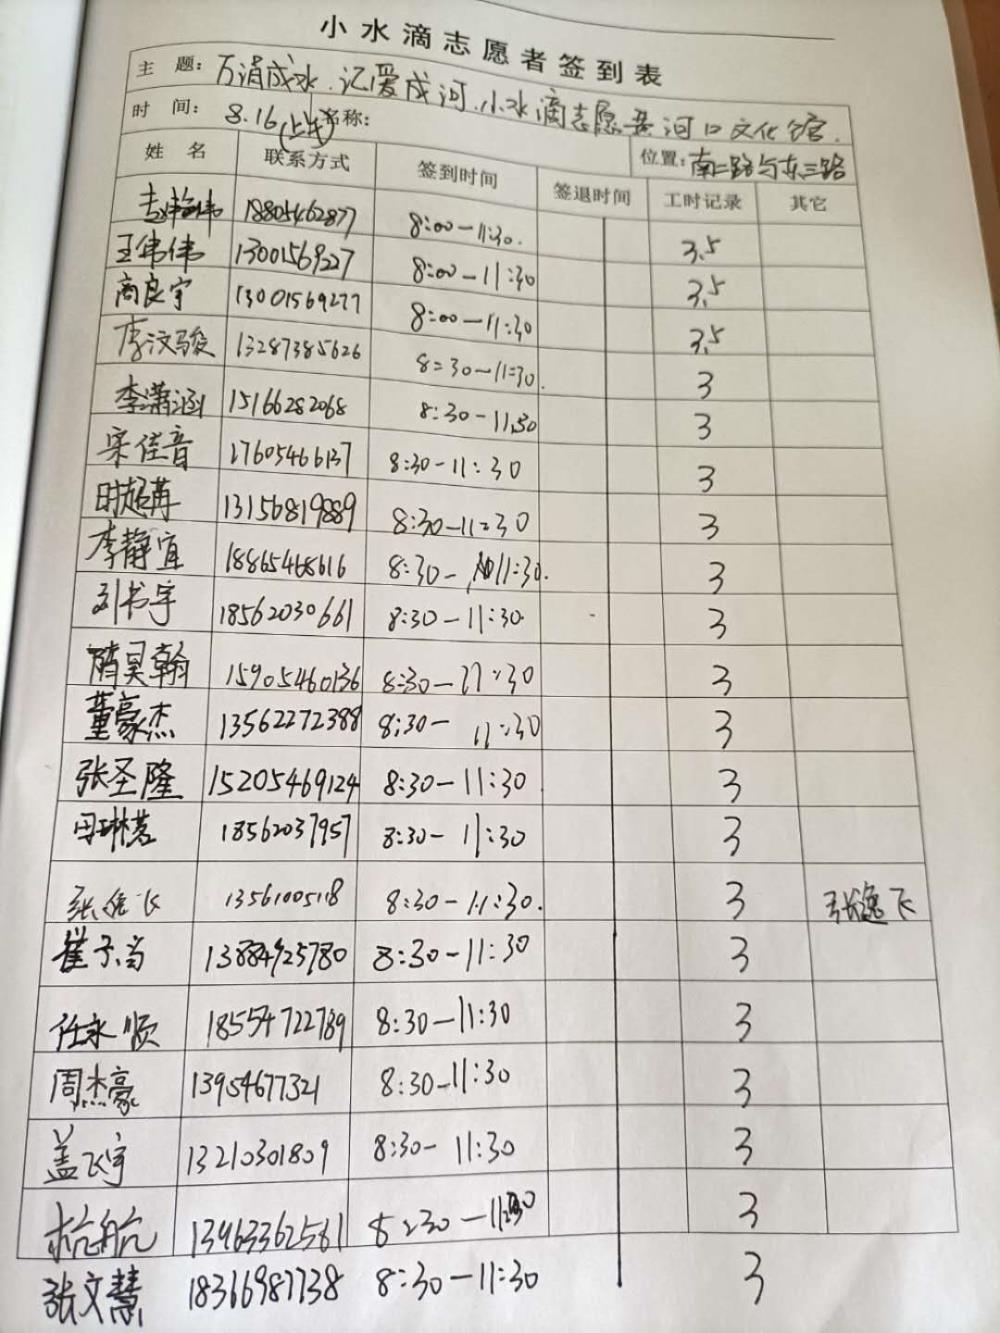 小水滴志愿者签到表
主 题: 万涓成水.汇爱成河.小水滴志愿者河口文化馆.
时 间: 8.16(上午) 名称:
位置: 南二路与东三路
姓 名 联系方式 签到时间 签退时间 工时记录 其它
18805462877 8:00-11:30. 3.5
王伟伟 13001569227 8:00-11:30 3.5
商良宇 13001569277 8:00-11:30 3.5
李汶骏 13287385626 8:30-11:30. 3
李潇涵 15166282068 8:30-11:30 3
宋佳音 17605466137 8:30-11:30 3
时超苒 13156819889 8:30-11:30 3
李静宜 18865468616 8:30-11:30. 3
刘书宇 18562030661 8:30-11:30. 3
隋昊翰 15905460136 8:30-11:30 3
董豪杰 13562272388 8:30-11:30 3
张圣隆 15205469124 8:30-11:30 3
田琳茗 18562037957 8:30-11:30 3
张逸飞 13561005118 8:30-11:30. 3 张逸飞
崔子当 13884925780 8:30-11:30 3
任永顺 18554722789 8:30-11:30 3
周杰豪 13954677321 8:30-11:30 3
盖飞宇 13210301809 8:30-11:30 3
杭航 13963362561 8:30-11:30 3
张文慧 18366987738 8:30-11:30 3